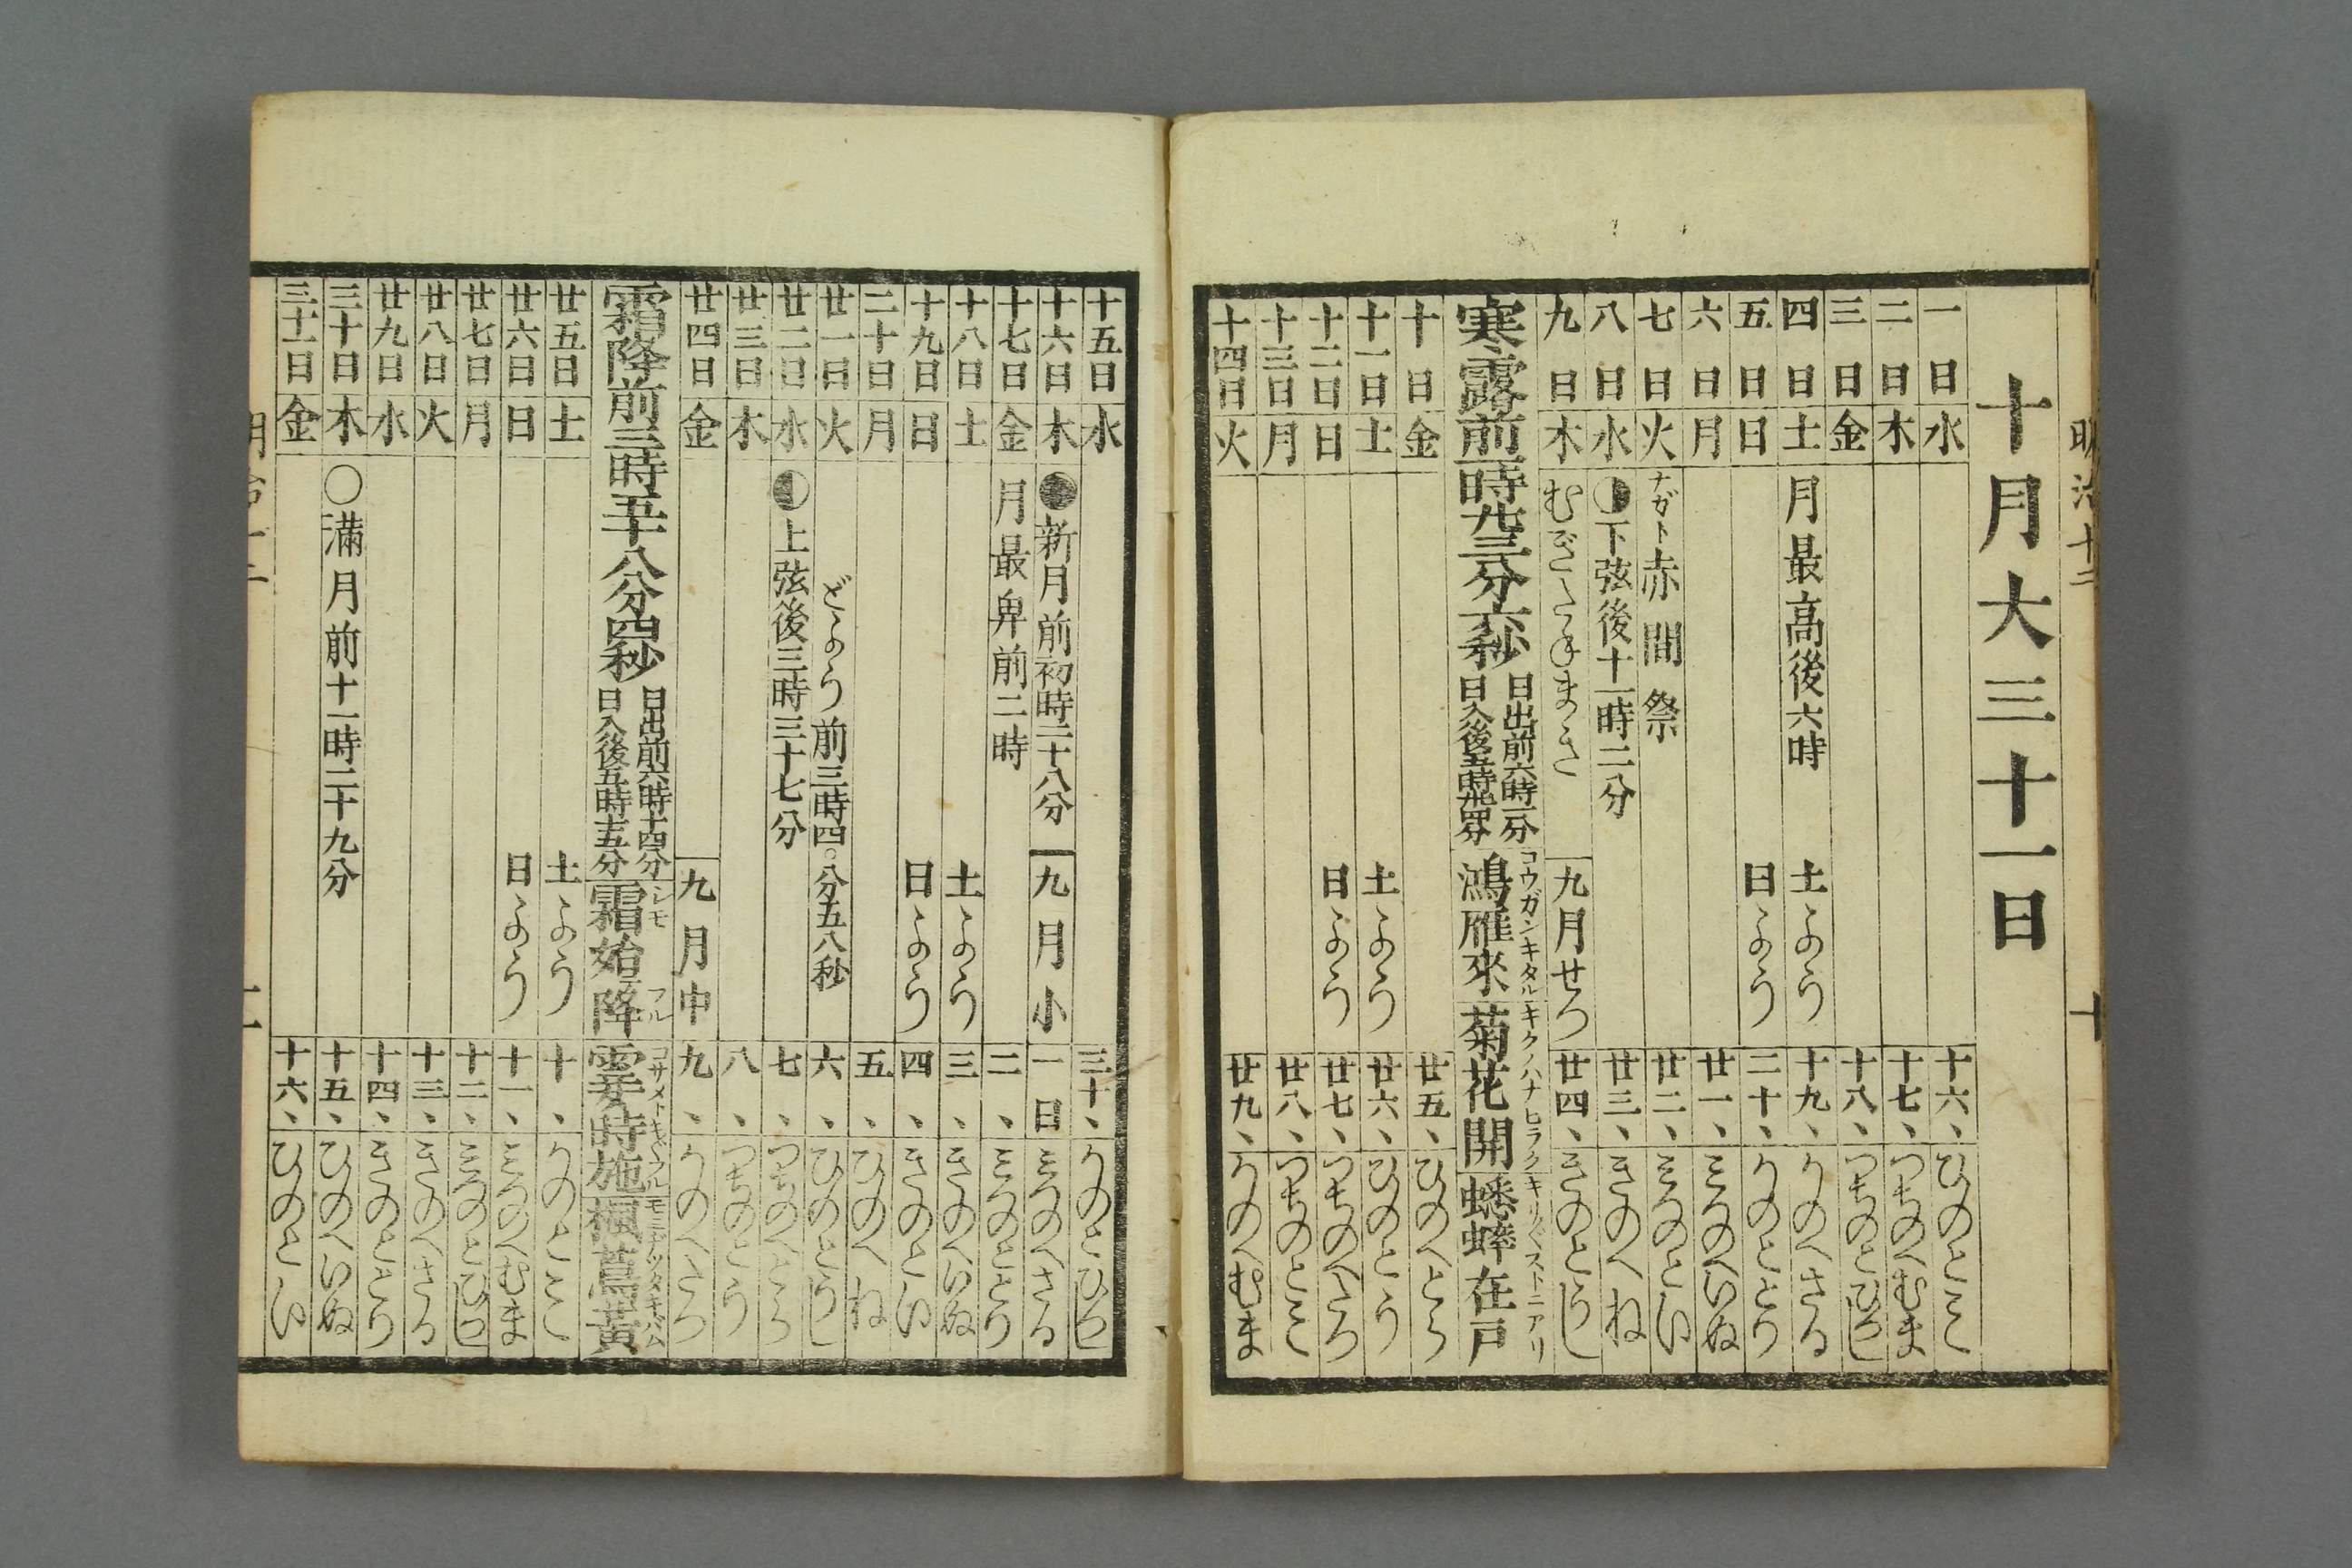 明治十二 十
十月大三十一日
一日 水 十六、 ひのとみ
二日 木 十七、 つちのへむま
三日 金 十八、 つちのとひつし
四日 土 月最高後六時 土よう 十九、 かのへさる
五日 日 日よう 二十、 かのととり
六日 月 廿一、 みつのへいぬ
七日 火 ナガト赤間祭 廿二、 みつのとい
八日 水 ◐下弦後十一時二分 廿三、 きのへね
九日 木 むぎたねまき 九月せつ 廿四、 きのとうし
寒露前一時卅三分六秒 日出前六時一分 日入後五時卅四分 鴻雁來 コウガンキタル 菊花開 キクノハナヒラク 蟋蟀在戸 キリ〲ストニアリ
十日 金 廿五、 ひのへとら
十一日 土 土よう 廿六、 ひのとう
十二日 日 日よう 廿七、 つちのへたつ
十三日 月 廿八、 つちのとみ
十四日 火 廿九、 かのへむま
十五日 水 三十、 かのとひつし
十六日 木 ●新月前初時二十八分 九月小 一日 みつのへさる
十七日 金 月最卑前二時 二、 みつのととり
十八日 土 土よう 三、 きのへいぬ
十九日 日 日よう 四、 きのとい
二十日 月 五、 ひのへね
廿一日 火 どよう前三時四〇分五八秒 六、 ひのとうし
廿二日 水 ◐上弦後三時三十七分 七、 つちのへとら
廿三日 木 八、 つちのとう
廿四日 金 九月中 九、 かのへたつ
霜降前三時五十八分四秒 日出前六時十四分 日入後五時十五分 霜始降 シモフル 霎時施 コサメトキ〲フル 楓蔦黄 モミヂツタキバム
廿五日 土 土よう 十、 かのとみ
廿六日 日 日よう 十一、 みつのへむま
廿七日 月 十二、 みつのとひつし
廿八日 火 十三、 きのへさる
廿九日 水 十四、 きのととり
三十日 木 ○滿月前十一時二十九分 十五、 ひのへいぬ
三十一日 金 十六、 ひのとい